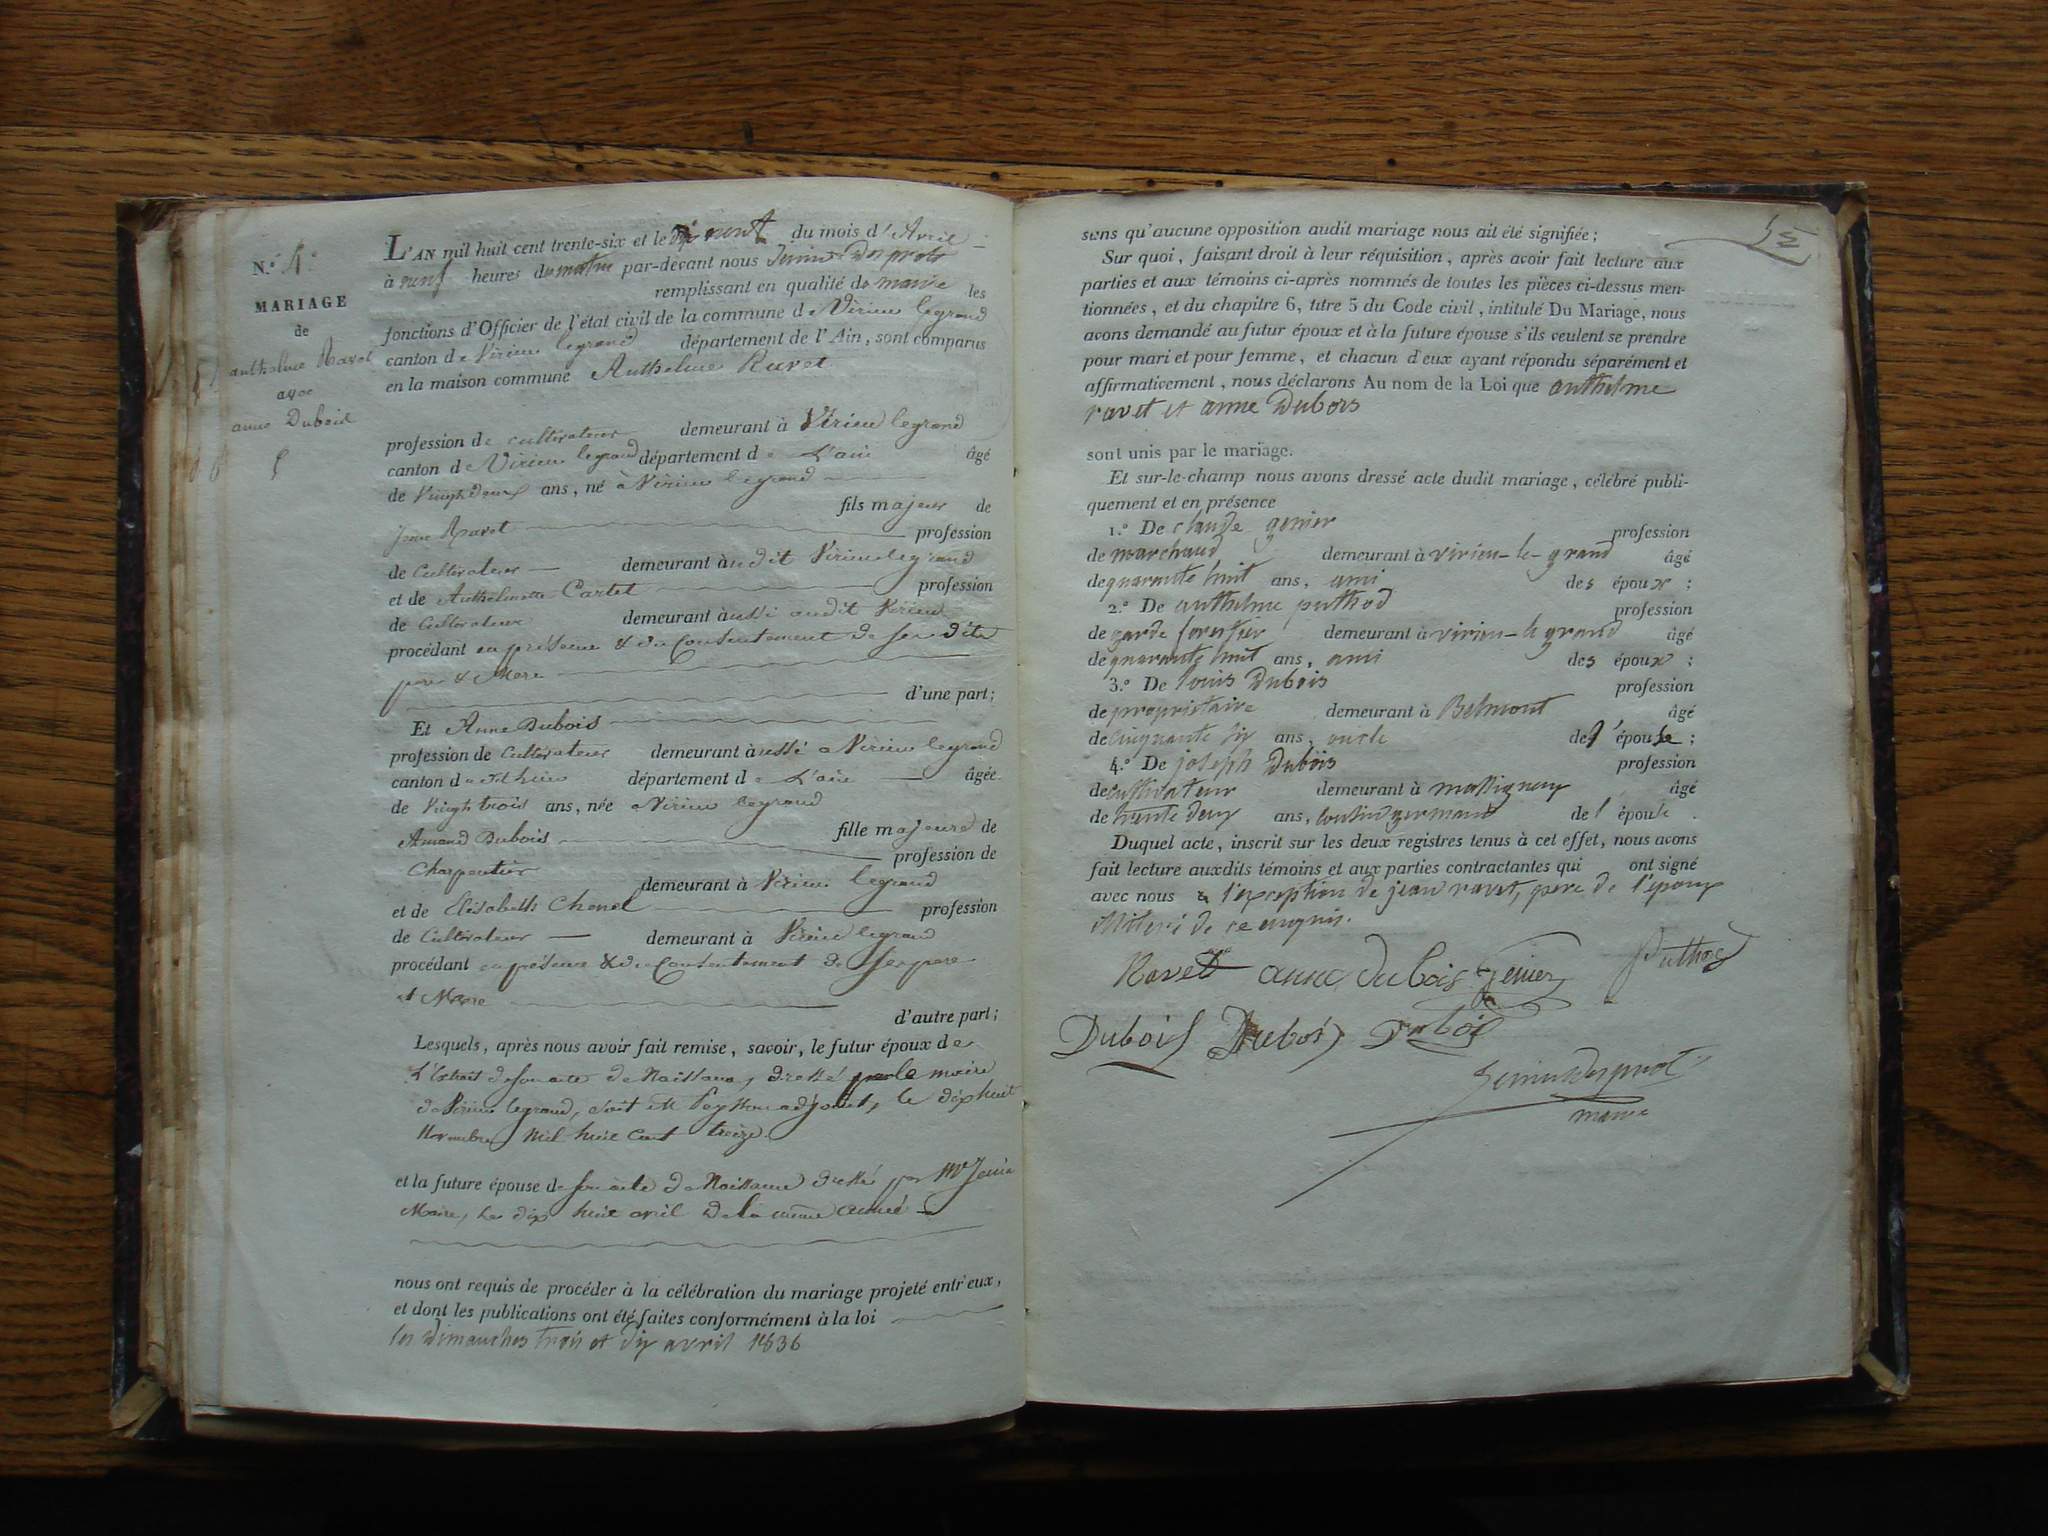 N.º 4.
MARIAGE
de
anthelme Ravet
avec
anne Dubois
L'AN mil huit cent trente-six et le dix neuf du mois d'Avril
à neuf heures du matin par-devant nous
remplissant en qualité de maire les
fonctions d'Officier de l'état civil de la commune de Virieu legrand
canton de Virieu legrand département de l'Ain, sont comparus
en la maison commune Anthelme Ravet
profession de cultivateur demeurant à Virieu legrand
canton de Virieu legrand département de L'ain âgé
de vingt deux ans, né à Virieu legrand
fils majeur de
Jean Ravet profession
de Cultivateur demeurant audit Virieu legrand
et de Anthelmette Cartet profession
de Cultivateur demeurant aussi audit Virieu
procédant en présence & du Consentement de ses dits
père & Mere
d'une part;
Et Anne Dubois
profession de Cultivateur demeurant aussi à Virieu legrand
canton dudit lieu département de L'ain âgée
de vingt trois ans, née à Virieu legrand
fille majeure de
Armand Dubois profession de
Charpentier demeurant à Virieu legrand
et de Elisabeth Chenel profession
de Cultivateur demeurant à Virieu legrand
procédant en présence & du Consentement de ses pere
et Mere
d'autre part;
Lesquels, après nous avoir fait remise, savoir, le futur époux de
L'Extrait de son acte de Naissance, dressé par le maire
de Virieu legrand, adjoint, le dix huit
Novembre Mil huit Cent treize
et la future épouse de son acte de Naissance dressé par Mr
Maire, le dix huit avril de la même année
nous ont requis de procéder à la célébration du mariage projeté entr'eux,
et dont les publications ont été faites conformément à la loi
les dimanches trois et dix avril 1836
sens qu'aucune opposition audit mariage nous ait été signifiée;
Sur quoi, faisant droit à leur réquisition, après avoir fait lecture aux
parties et aux témoins ci-après nommés de toutes les pièces ci-dessus men-
tionnées, et du chapitre 6, titre 5 du Code civil, intitulé Du Mariage, nous
avons demandé au futur époux et à la future épouse s'ils veulent se prendre
pour mari et pour femme, et chacun d'eux ayant répondu séparément et
affirmativement, nous déclarons Au nom de la Loi que anthelme
ravet et anne Dubois
sont unis par le mariage.
Et sur-le-champ nous avons dressé acte dudit mariage, célébré publi-
quement et en présence
1.º De claude genier profession
de marchand demeurant à virieu-le-grand âgé
de quarante huit ans, ami des époux;
2.º De anthelme puthod profession
de garde forestier demeurant à virieu-le grand âgé
de quarante huit ans, ami des époux;
3.º De louis Dubois profession
de propriétaire demeurant à Belmont âgé
de cinquante six ans, oncle de l'épouse;
4.º De joseph Dubois profession
de cultivateur demeurant à massigneux âgé
de trente deux ans, cousin germain de l'épouse.
Duquel acte, inscrit sur les deux registres tenus à cet effet, nous avons
fait lecture auxdits témoins et aux parties contractantes qui ont signé
avec nous à l'exception de jean ravet, pere de l'epoux
illiteré de ce enquis.
Ravet anne dubois Genier Puthod
Dubois Dubois Dubois
maire